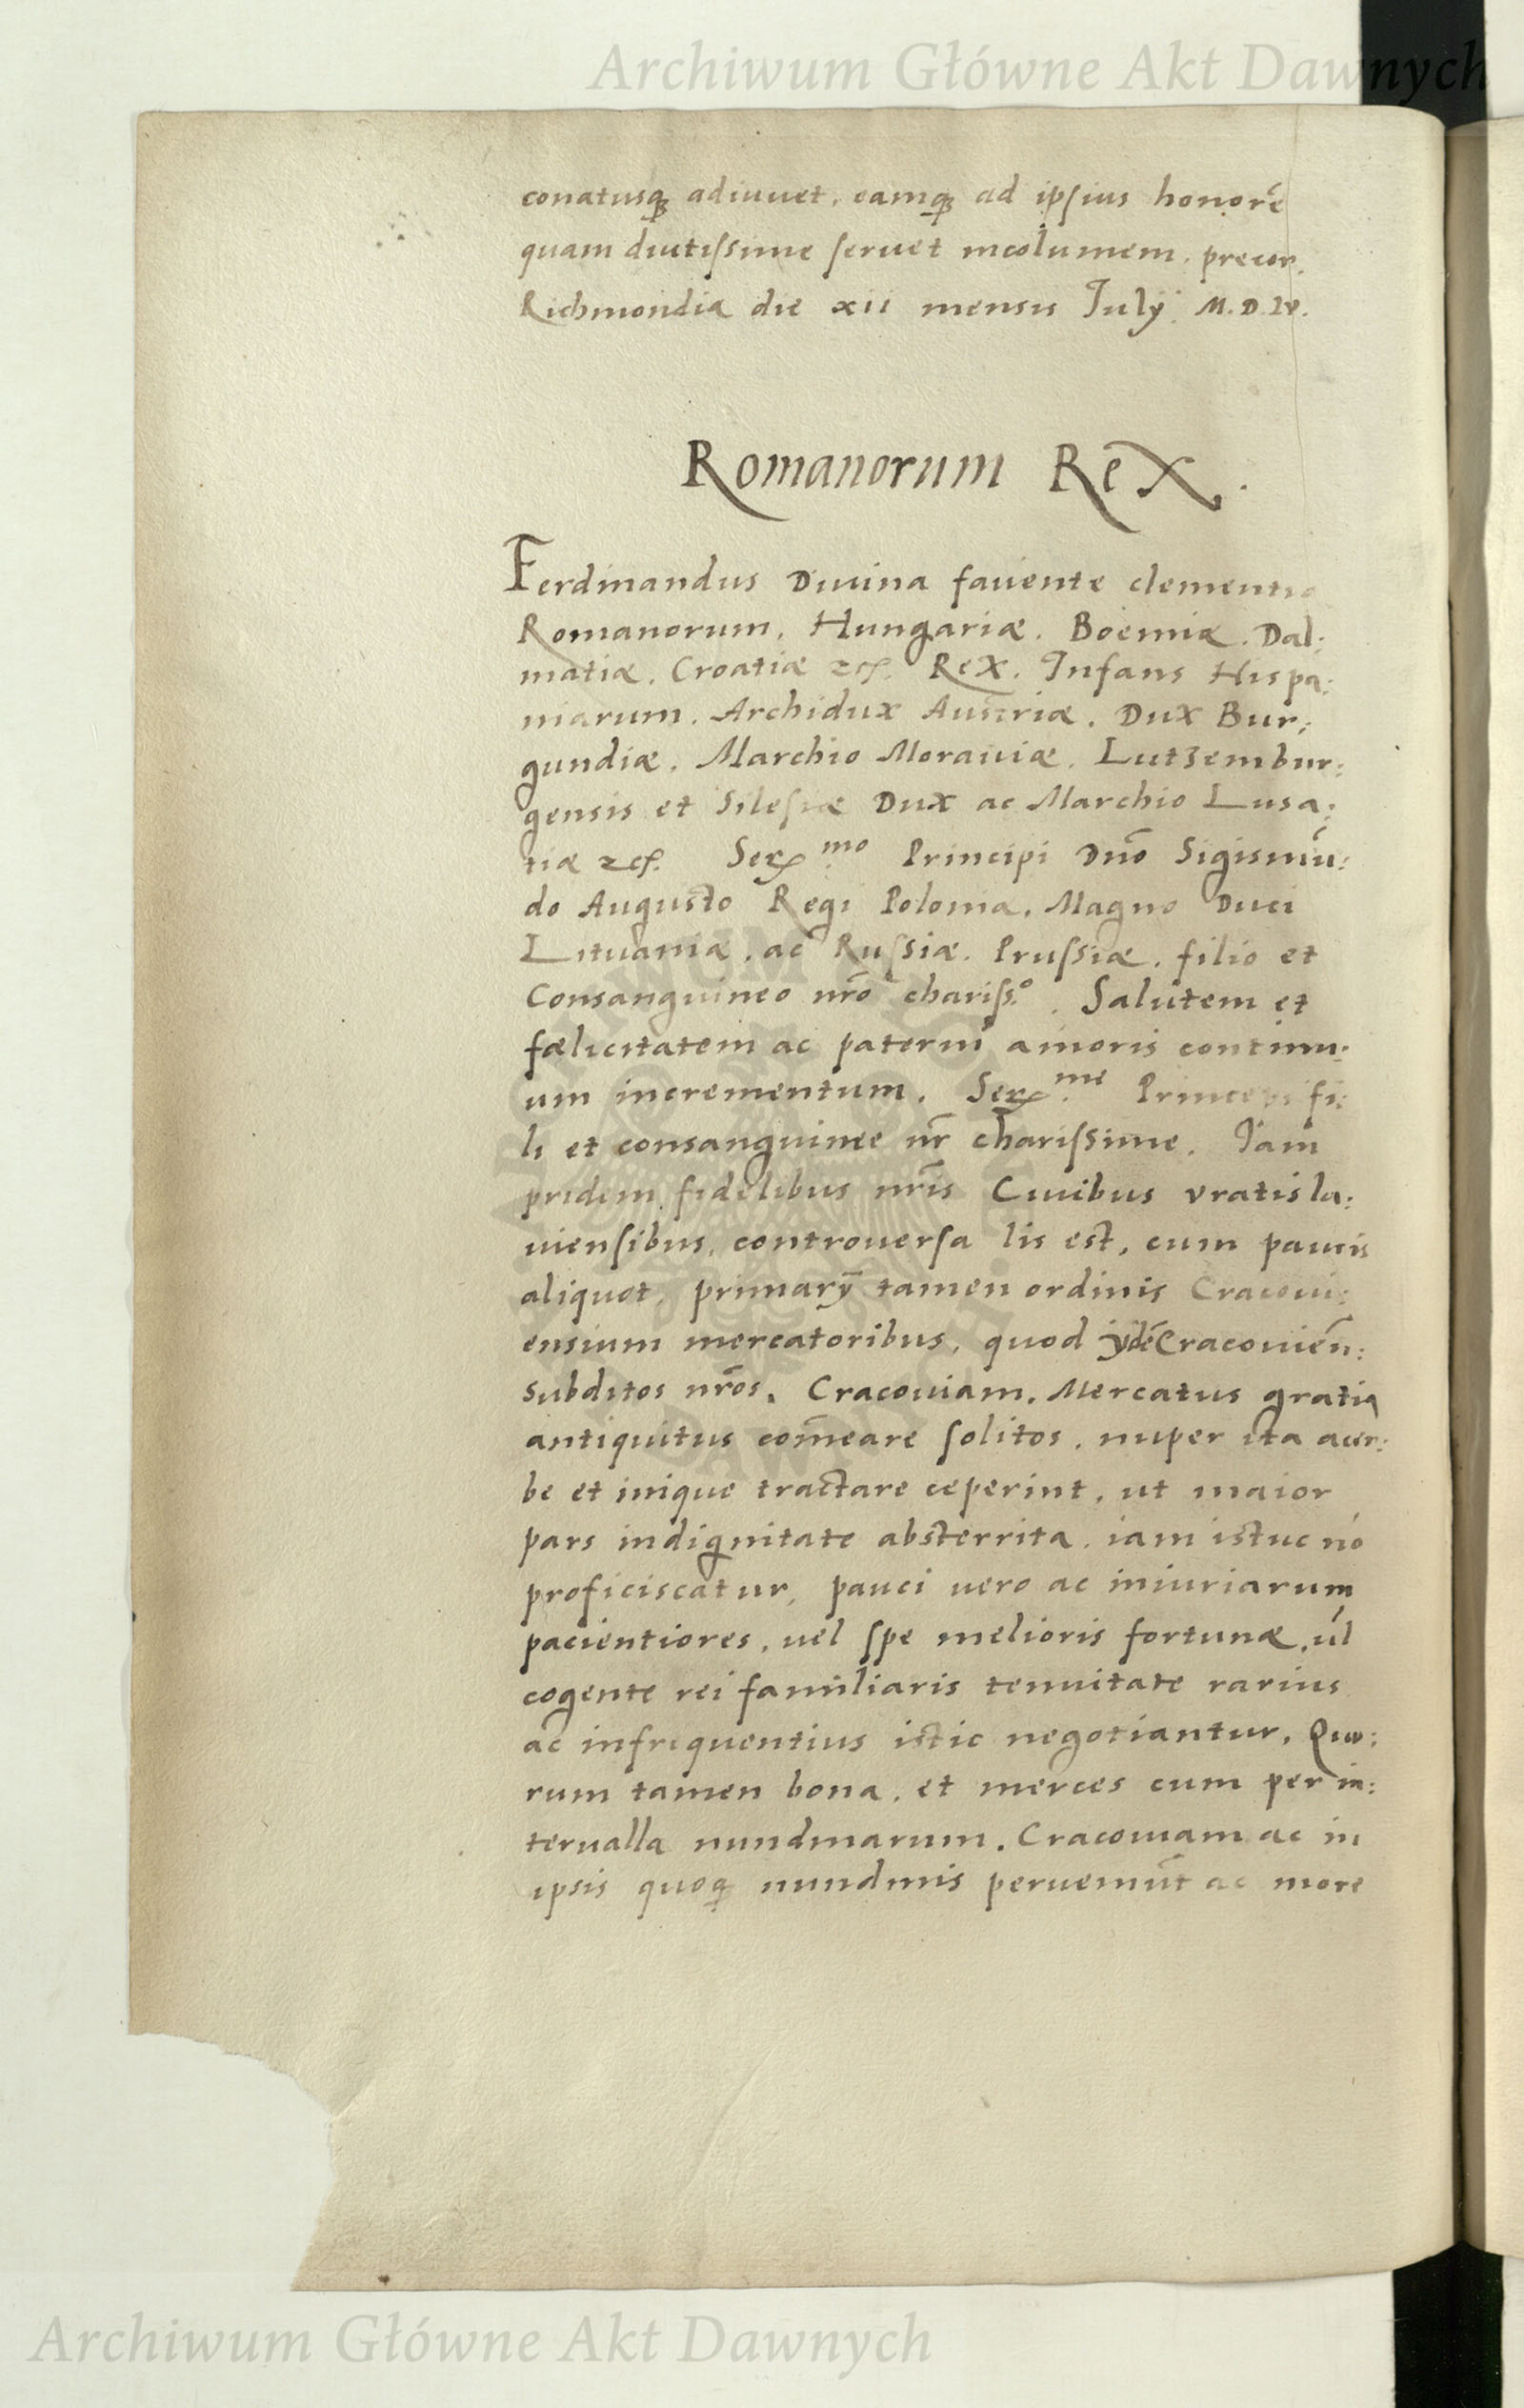 Archiwum Główne Akt Dawnych
conatusq̃ adiuuet, eamq̃ ad ipsius honorē
quam diutissime seruet incolumem, precor.
Richmondiæ die xii mensis July M.D.LV.
Romanorum Rex.
Ferdinandus Diuina fauente clementia
Romanorum, Hungariæ, Boemiæ, Dal:
matiæ, Croatiæ &c. Rex. Infans Hispa:
niarum, Archidux Austriæ, Dux Bur:
gundiæ, Marchio Morauiæ, Lutzembur:
gensis et Silesiæ Dux ac Marchio Lusa:
tiæ &c. Ser.mo Principi Dno Sigismũ:
do Augusto Regi Poloniæ, Magno Duci
Lituaniæ, ac Russiæ, Prussiæ, filio et
Consanguineo nrõ chariss.o. Salutem et
fælicitatem ac paterni amoris continu:
um incrementum. Ser.me Princeps fi:
li et consanguinee nr̃ charissime. Iam
pridem fidelibus nrĩs Ciuibus vratisla:
uiensibus, controuersa lis est, cum paucis
aliquot, primarÿ tamen ordinis Cracoui:
ensium mercatoribus, quod ÿdẽ Cracouiẽn:
subditos nrõs, Cracouiam, Mercatus gratia
antiquitus com̃eare solitos, nuper ita acer:
be et inique tractare ceperint, ut maior
pars indignitate absterrita, iam istuc nõ
proficiscatur, pauci uero ac iniuriarum
pacientiores, uel spe melioris fortunæ, ul̃
cogente rei familiaris tenuitate rarius
ac infrequentius istic negotiantur, Quo:
rum tamen bona, et merces cum per in:
terualla nundinarum, Cracouiam ac in
ipsis quoq̃ nundinis perueniũt ac more
Archiwum Główne Akt Dawnych